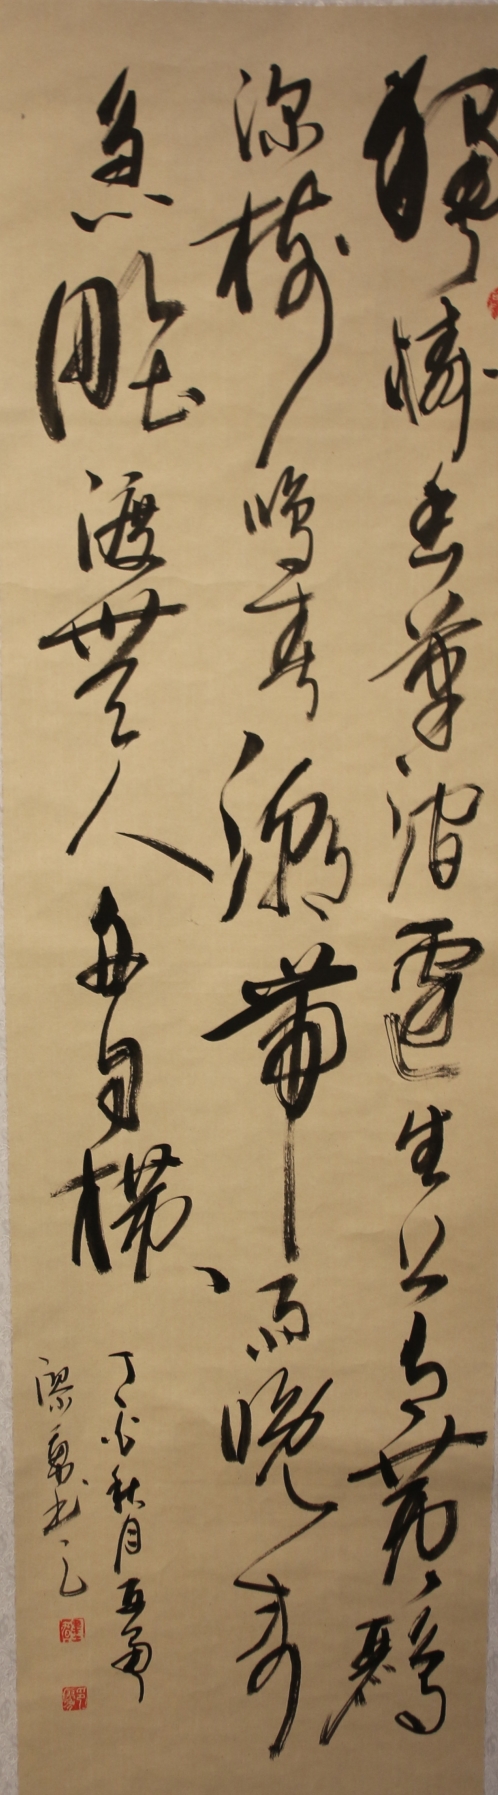 獨憐幽草澗邊生上有黃鸝
深樹鳴春潮帶雨晚來
急野渡無人舟自橫
丁亥秋月